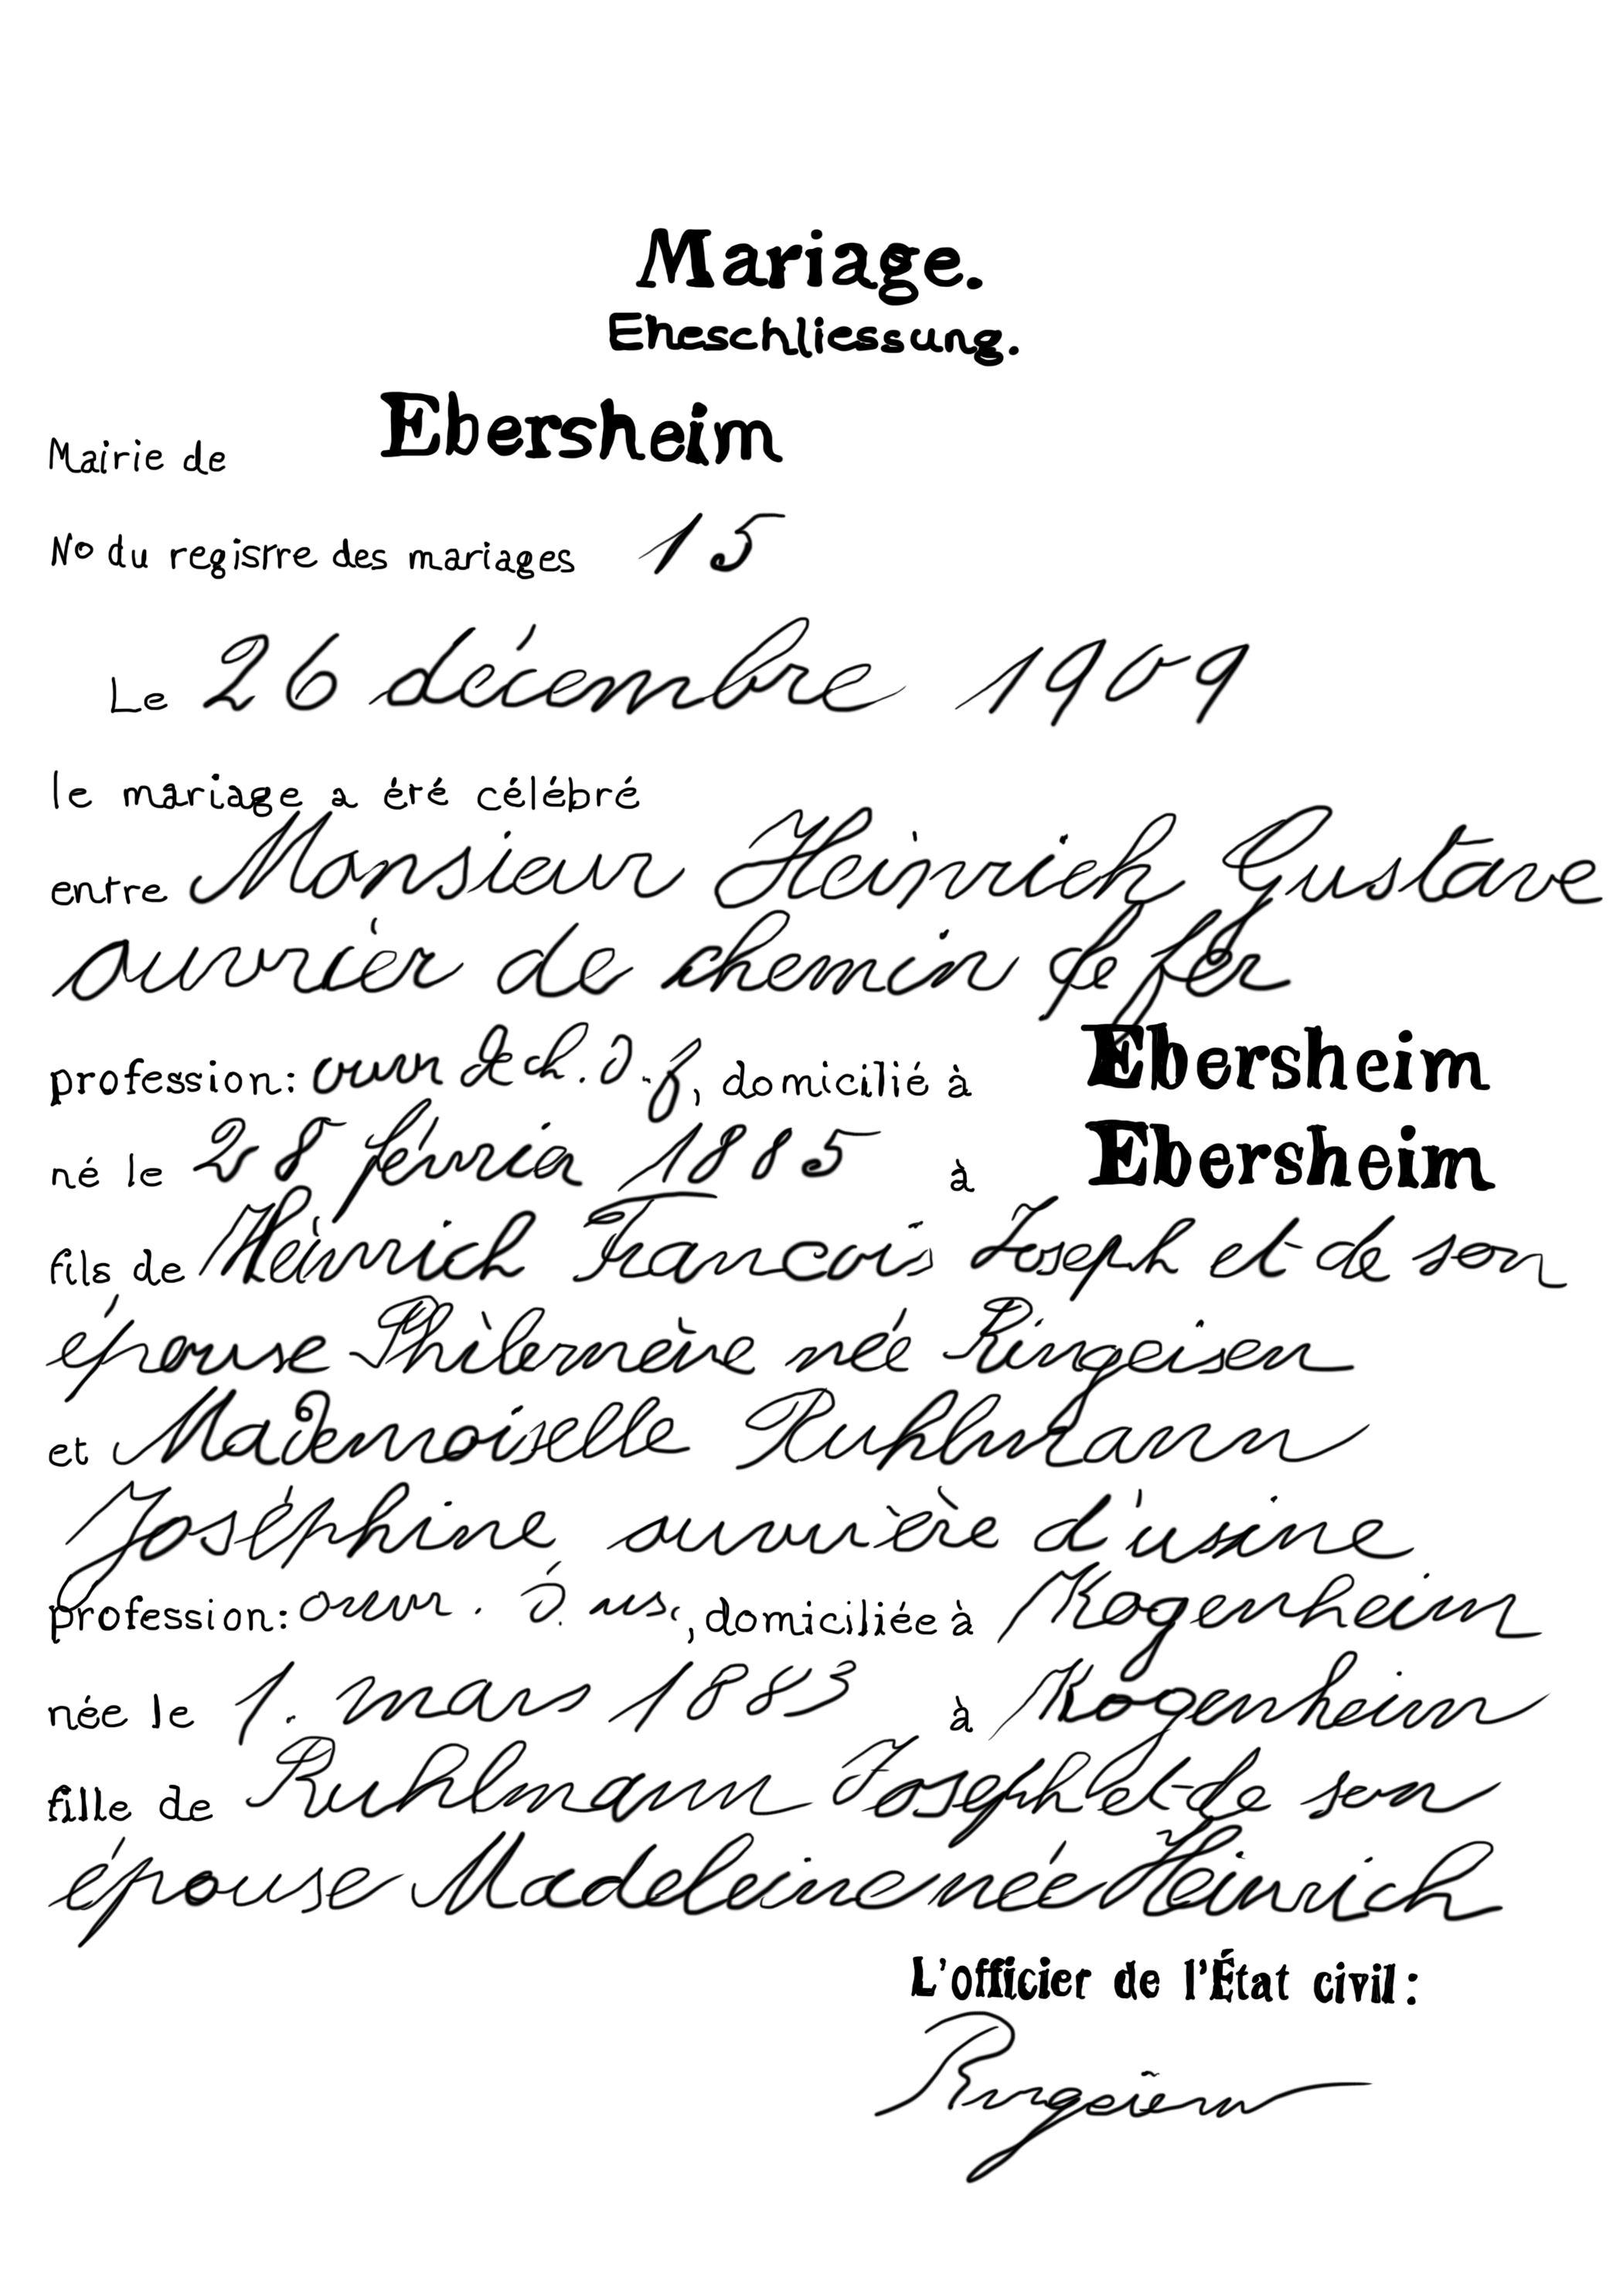 Mariage.
Eheschliessung.
Mairie de Ebersheim
No du registre des mariages 15
Le 26 décembre 1909
le mariage a été célébré
entre Monsieur Heinrich Gustave
ouvrier de chemin de fer
profession: ouvr de ch. d. f, domicilié à Ebersheim
né le 28 février 1885 à Ebersheim
fils de Heinrich Francois Joseph et de son
épouse née Ringeisen
et Mademoiselle Ruhlmann
Joséphine ouvrière d'usine
profession: ouvr. d. us., domiciliée à Kogenheim
née le 1. mars 1883 à Kogenheim
fille de Ruhlmann Joseph et de son
épouse Madeleine née Heinrich
L'officier de l'État civil:
Ringeisen